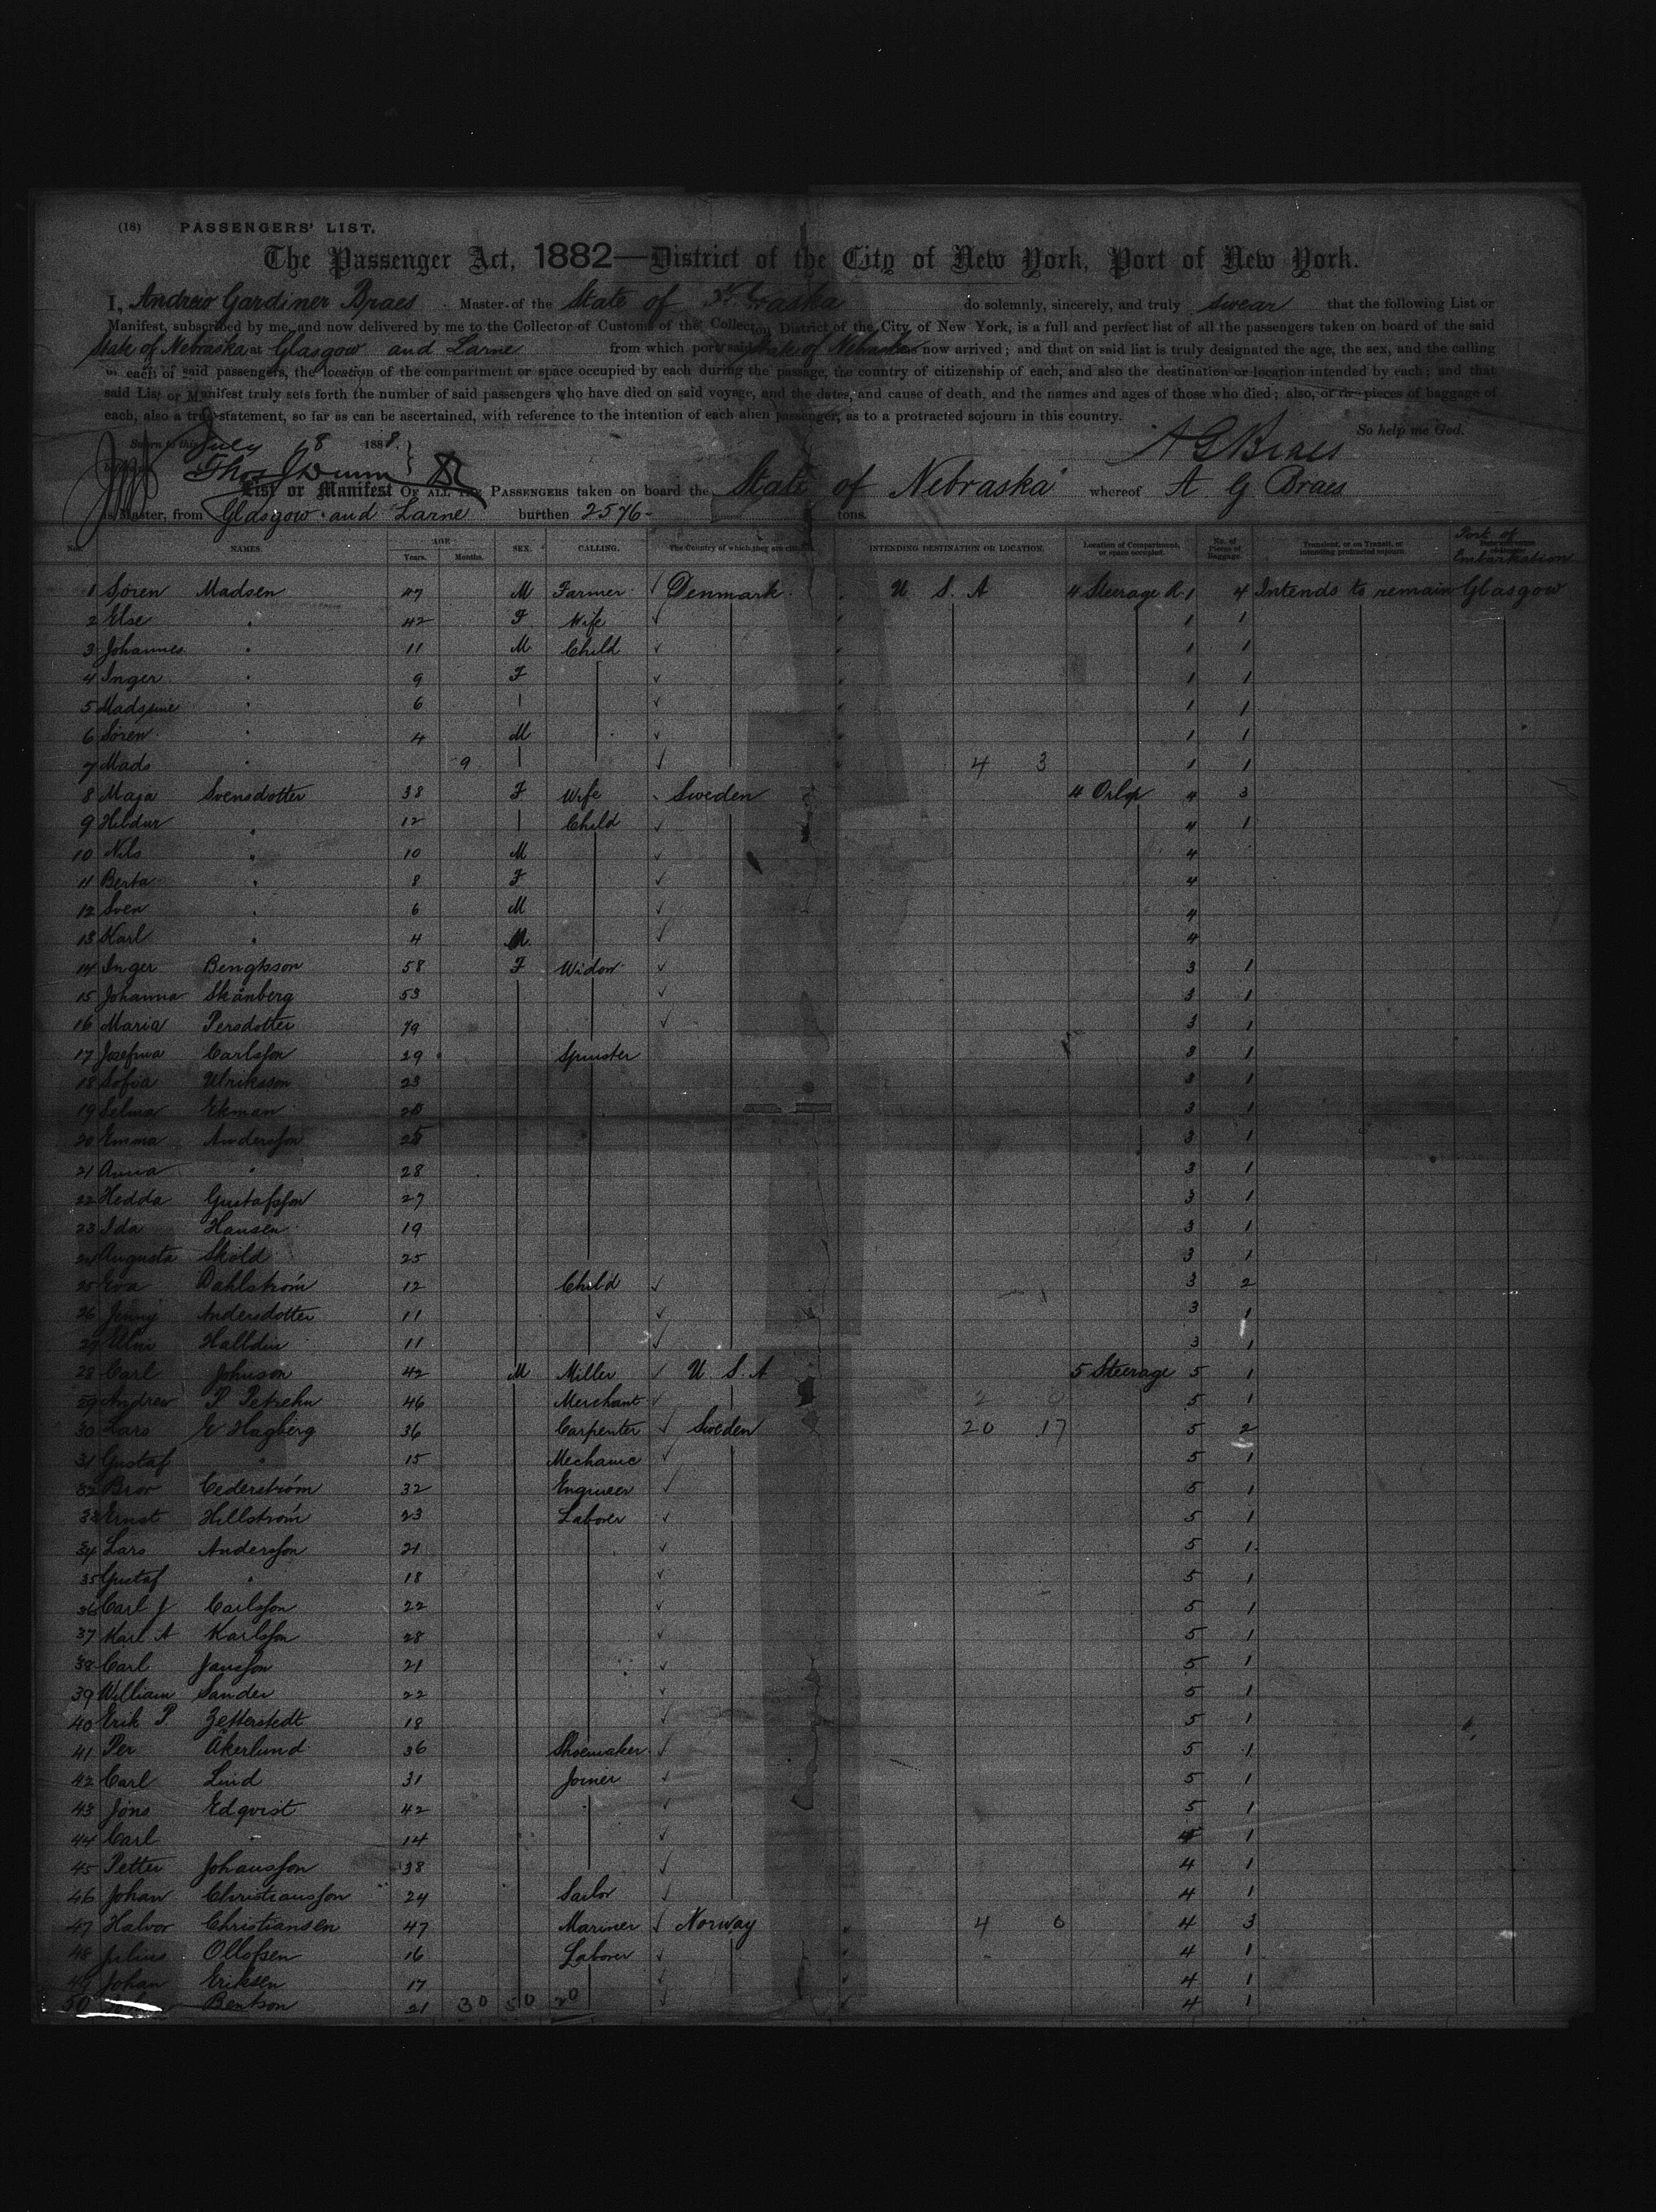 (18) PASSENGERS' LIST.
The Passenger Act, 1882—District of the City of New York, Port of New York.
I, Andrew Gardiner Braes Master of the State of Nebraska do solemnly, sincerely, and truly swear that the following List or
Manifest, subscribed by me, and now delivered by me to the Collector of Customs of the Collection District of the City of New York, is a full and perfect list of all the passengers taken on board of the said
State of Nebraska at Glasgow and Larne from which port said State of Nebraska has now arrived; and that on said list is truly designated the age, the sex, and the calling
of each of said passengers, the location of the compartment or space occupied by each during the passage, the country of citizenship of each, and also the destination or location intended by each; and that
said List or Manifest truly sets forth the number of said passengers who have died on said voyage, and the dates, and cause of death, and the names and ages of those who died; also, of the pieces of baggage of
each, also a true statement, so far as can be ascertained, with reference to the intention of each alien passenger, as to a protracted sojourn in this country.
So help me God.
Sworn to this July 18 1888.
A G Braes
Thos J Dunn
List or Manifest OF ALL THE PASSENGERS taken on board the State of Nebraska whereof A G Braes
is Master, from Glasgow and Larne burthen 2576 tons.
No. NAMES. AGE Years. Months. SEX. CALLING. The Country of which they are citizens. INTENDING DESTINATION OR LOCATION. Location of Compartment, or space occupied. No. of Pieces of Baggage. Transient, or on Transit, or intending protracted sojourn. Port of Embarkation
1 Soren Madsen 47 M Farmer Denmark U S A 4 Steerage R. 1 4 Intends to remain Glasgow
2 Else " 42 F Wife 1 1
3 Johannes " 11 M Child 1 1
4 Inger " 9 F 1 1
5 Madsine " 6 1 1
6 Soren " 4 M 1 1
7 Mads " 9 4 3 1 1
8 Maja Svensdotter 38 F Wife Sweden 4 Orlop 4 3
9 Hildur " 12 Child 4 1
10 Nils " 10 M 4
11 Berta " 8 F 4
12 Sven " 6 M 4
13 Karl " 4 M 4
14 Inger Bengtsson 58 F Widow 3 1
15 Johanna Skånberg 53 3 1
16 Maria Persdotter 79 3 1
17 Josefina Carlsson 29 Spinster 3 1
18 Sofia Ulriksson 23 3 1
19 Selma Ekman 3 1
20 Emma Andersson 3 1
21 Anna " 28 3 1
22 Hedda Gustafsson 27 3 1
23 Ida Hansen 19 3 1
24 Augusta Sköld 25 3 1
25 Eva Dahlström 12 Child 3 2
26 Jenny Andersdotter 11 3 1
27 Halldin 11 3 1
28 Carl Johnson 42 M Miller U S A 5 Steerage 5 1
29 Andrew P Petrehn 46 Merchant 2 0 5 1
30 Lars E Hagberg 36 Carpenter Sweden 20 17 5 2
31 Gustaf " 15 Mechanic 5 1
32 Bror Cederström 32 Engineer 5 1
33 Ernst Hillström 23 Laborer 5 1
34 Lars Andersson 21 5 1
35 Gustaf " 18 5 1
36 Carl J Carlsson 22 5 1
37 Karl A Karlsson 28 5 1
38 Carl Jansson 21 5 1
39 William Sander 22 5 1
40 Erik P. Zetterstedt 18 5 1
41 Per Åkerlund 36 Shoemaker 5 1
42 Carl Lind 31 Joiner 5 1
43 Jöns Edqvist 42 5 1
44 Carl " 14 4 1
45 Petter Johansson 38 4 1
46 Johan Christiansson 24 Sailor 4 1
47 Halvor Christiansen 47 Mariner Norway 4 0 4 3
48 Julius Ollofsen 16 Laborer 4 1
49 Johan Eriksen 17 4 1
50 Bentson 21 30 50 20 4 1